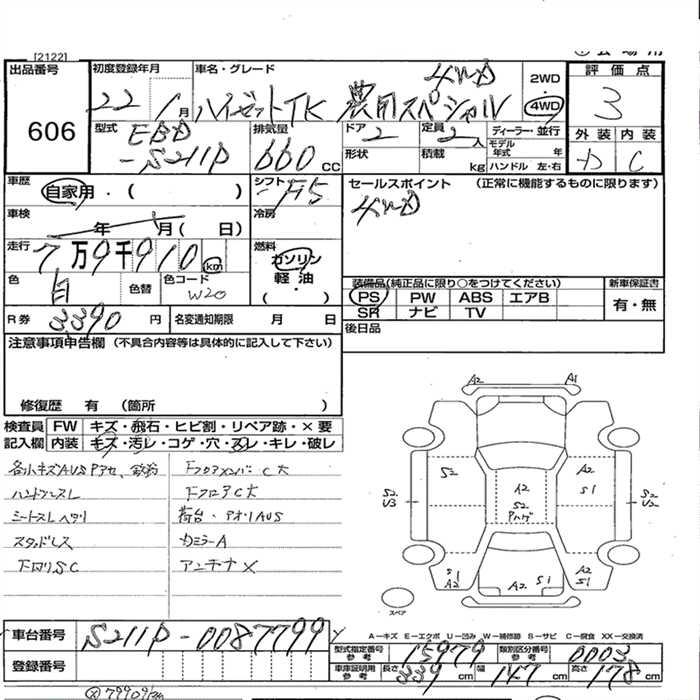 [2122]
出品番号
606
初度登録年月
22 1月
車名・グレード
4WD
ハイゼットTK 農用スペシャル
2WD
4WD
評価点
3
型式
EBD
-S211P
排気量
660cc
ドア 2
定員 2人
ディーラー・並行
形状
積載 kg
モデル年式 年
ハンドル 左・右
外装 内装
C
車歴
自家用・( )
シフト F5
セールスポイント (正常に機能するものに限ります)
4WD
車検
年 月( 日)
冷房
走行
7万9千910km
燃料
ガソリン
軽油
(・)
色
白
色替
色コード
W20
装備品(純正品に限り○をつけてください)
新車保証書
PS PW ABS エアB
有・無
SR ナビ TV
R券 3390円
名変通知期限 月 日
後日品
注意事項申告欄 (不具合内容等は具体的に記入して下さい)
修復歴 有 (箇所 )
検査員
記入欄
FW キズ・飛石・ヒビ割・リペア跡・×要
内装 キズ・汚レ・コゲ・穴・スレ・キレ・破レ
ハンドルスレ
シートスレヘタリ
スタッドレス
下回りSC
フロアメンバーC大
フロアC大
荷台・アオリAUS
カミラーA
アンテナX
A2
A1
S2
A2
S1
A2
S2
Pハゲ
S2
U3
S2
U2
S1
A1
A2
S1
A2
S1
スペア
A-キズ E-エクボ U-凹み W-補修跡 S-サビ C-腐食 XX-交換済
車台番号
S211P-0087799
登録番号
型式指定番号
参考
15979
類別区分番号
参考
0003
車庫証明用
参考
長さ 339cm
幅 147cm
高さ 178cm